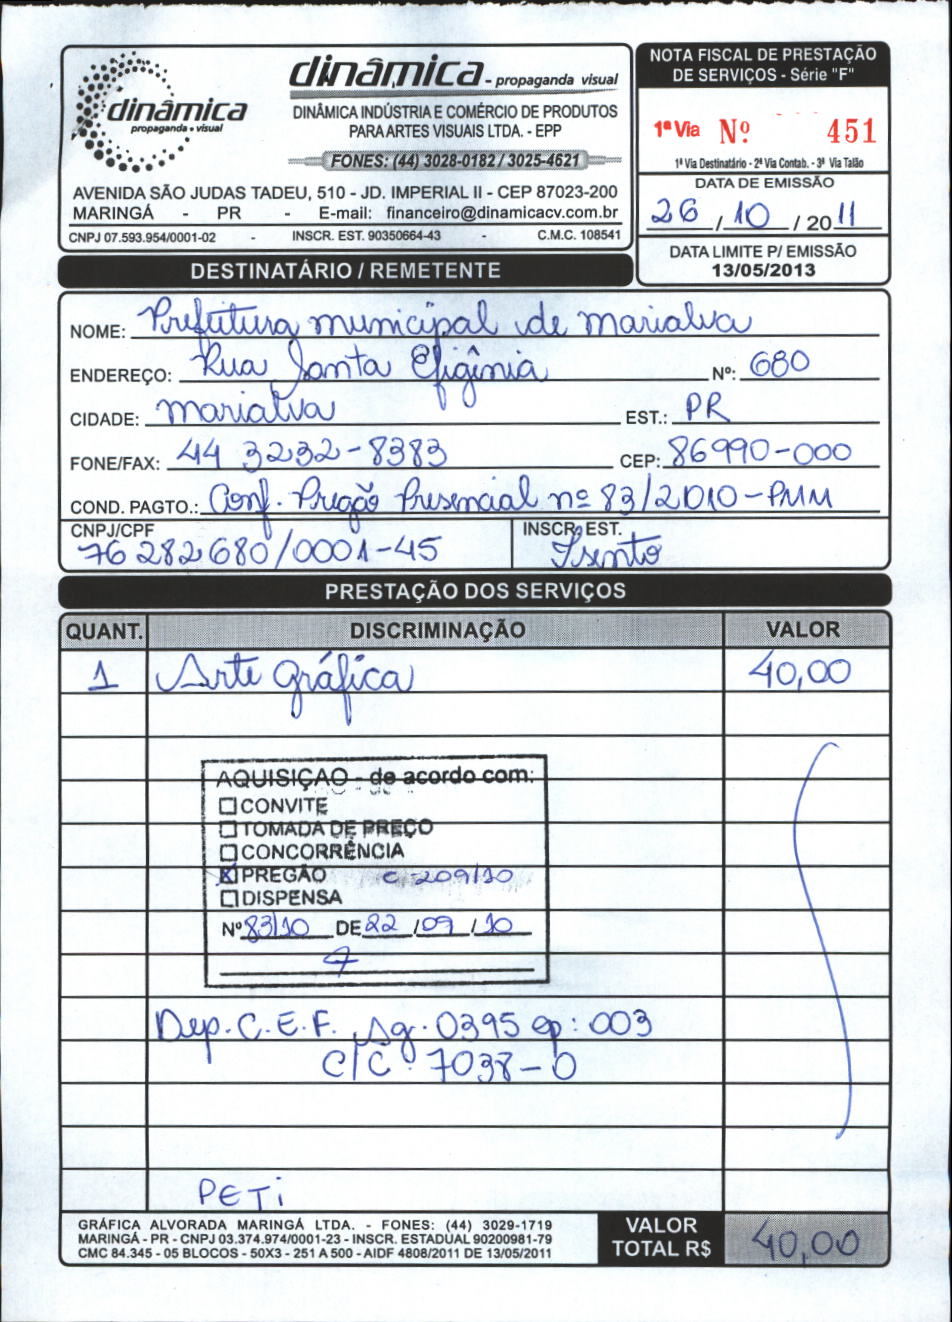 dinâmica
propaganda • visual
dinâmica - propaganda visual
DINÂMICA INDÚSTRIA E COMÉRCIO DE PRODUTOS
PARA ARTES VISUAIS LTDA. - EPP
FONES: (44) 3028-0182 / 3025-4621
AVENIDA SÃO JUDAS TADEU, 510 - JD. IMPERIAL II - CEP 87023-200
MARINGÁ - PR - E-mail: financeiro@dinamicacv.com.br
CNPJ 07.593.954/0001-02 - INSCR. EST. 90350664-43 - C.M.C. 108541
NOTA FISCAL DE PRESTAÇÃO
DE SERVIÇOS - Série "F"
1ª Via Nº 451
1ª Via Destinatário - 2ª Via Contab. - 3ª Via Talão
DATA DE EMISSÃO
26 / 10 / 2011
DATA LIMITE P/ EMISSÃO
13/05/2013
DESTINATÁRIO / REMETENTE
NOME: Prefeitura municipal de Marialva
ENDEREÇO: Rua Santa Efigênia Nº: 680
CIDADE: Marialva EST.: PR
FONE/FAX: 44 3232-8383 CEP: 86990-000
COND. PAGTO.: Conf. Pregão Presencial nº 83/2010-PMM
CNPJ/CPF INSCR. EST.
76 282680/0001-45 Isento
PRESTAÇÃO DOS SERVIÇOS
QUANT. DISCRIMINAÇÃO VALOR
1 Arte gráfica 40,00
AQUISIÇÃO - de acordo com:
CONVITE
TOMADA DE PREÇO
CONCORRÊNCIA
X PREGÃO C-209/10
DISPENSA
Nº 83/10 DE 22 / 09 / 10
Dep. C.E.F. Ag. 0395 op: 003
C/C. 7038-0
PETi
GRÁFICA ALVORADA MARINGÁ LTDA. - FONES: (44) 3029-1719
MARINGÁ - PR - CNPJ 03.374.974/0001-23 - INSCR. ESTADUAL 90200981-79
CMC 84.345 - 05 BLOCOS - 50X3 - 251 A 500 - AIDF 4808/2011 DE 13/05/2011
VALOR
TOTAL R$ 40,00